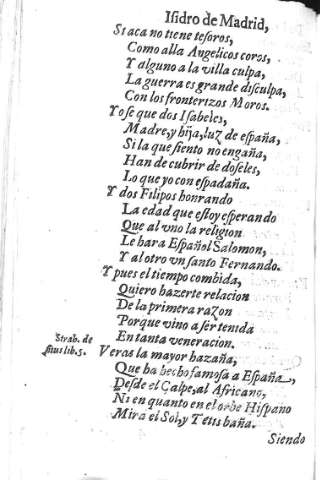 Isidro de Madrid,
Si aca no tiene tesoros,
Como alla Angelicos coros,
Y alguno a la villa culpa,
La guerra es grande disculpa,
Con los fronterizos Moros.
Yo se que dos Isabeles,
Madre, y hija, luz de españa,
Si la que siento no engaña,
Han de cubrir de doseles,
Lo que yo con espadaña.
Y dos Filipos honrando
La edad que estoy esperando
Que al vno la religion
Le hara Español Salomon,
Y al otro vn santo Fernando.
Y pues el tiempo combida,
Quiero hazerte relacion
De la primera razon
Porque vino a ser tenida
En tanta veneracion.
Strab. de
situs lib. 5.
Veras la mayor hazaña,
Que ha hecho famosa a España,
Desde el Calpe, al Africano,
Ni en quanto en el orbe Hispano
Mira el Sol, y Tetis baña.
Siendo